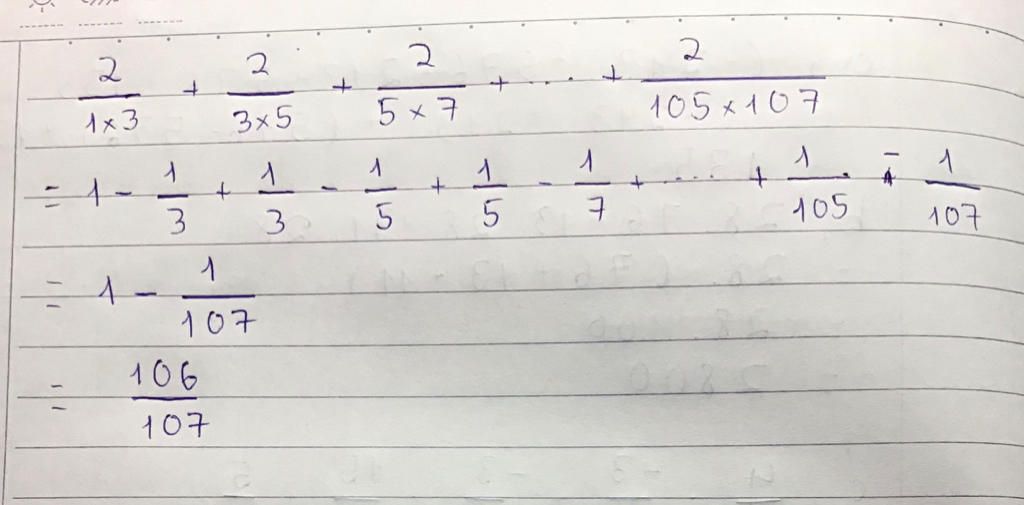 2/(1×3) + 2/(3×5) + 2/(5×7) + ... + 2/(105×107)
= 1 - 1/3 + 1/3 - 1/5 + 1/5 - 1/7 + ... + 1/105 - 1/107
= 1 - 1/107
= 106/107